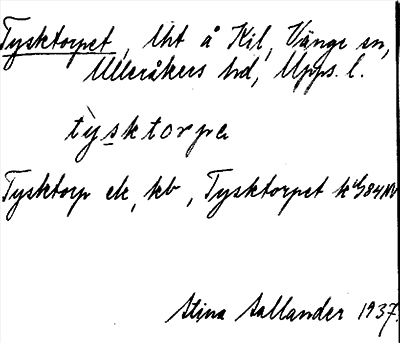 Tysktorpet, lht å Kil, Vänge sn,
Ulleråkers hd, Upps. l.
tỳsktorpa
Tysktorp ek, kb, Tysktorpet
Stina Sallander 1937.